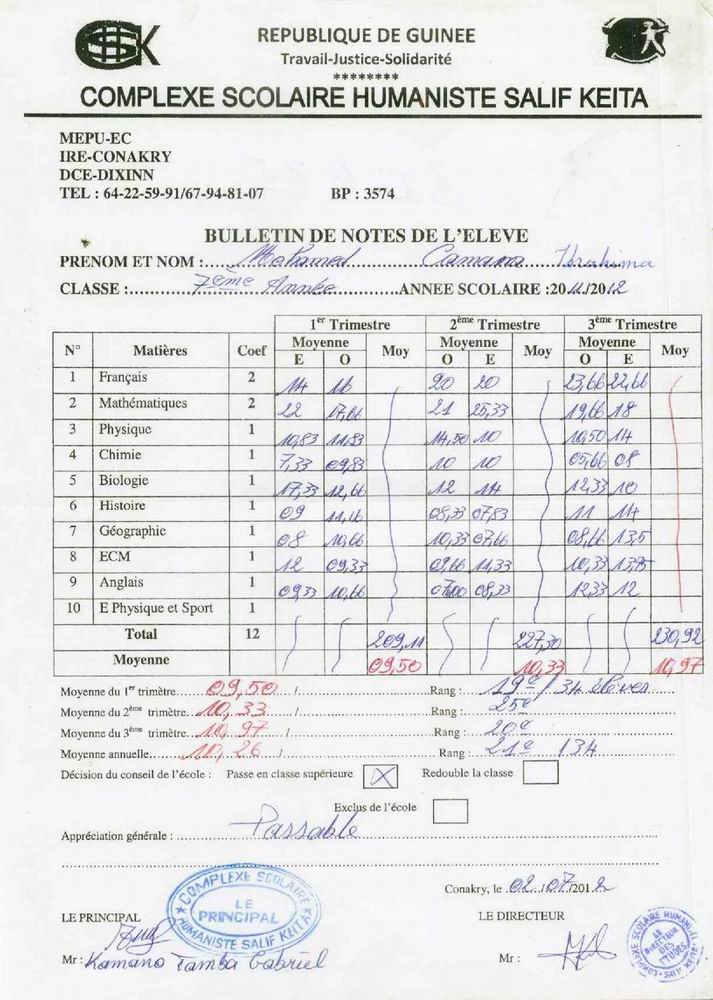 REPUBLIQUE DE GUINEE
Travail-Justice-Solidarité
********
COMPLEXE SCOLAIRE HUMANISTE SALIF KEITA
MEPU-EC
IRE-CONAKRY
DCE-DIXINN
TEL : 64-22-59-91/67-94-81-07 BP : 3574
BULLETIN DE NOTES DE L'ELEVE
PRENOM ET NOM : Mohamed Camara Ibrahima
CLASSE : 7ème Année ANNEE SCOLAIRE :2011/2012
1er Trimestre 2ème Trimestre 3ème Trimestre
N° Matières Coef Moyenne Moy Moyenne Moy Moyenne Moy
E O O E O E
1 Français 2 14 16 20 20 23,66 22,66
2 Mathématiques 2 22 17,66 21 25,33 19,66 18
3 Physique 1 10,83 11,83 14,50 10 10,50 14
4 Chimie 1 7,33 09,83 10 10 05,66 08
5 Biologie 1 17,33 12,66 12 14 12,33 10
6 Histoire 1 09 11,16 08,33 07,83 11 14
7 Géographie 1 08 10,66 10,33 07,66 08,66 13,5
8 ECM 1 12 09,33 09,66 11,33 10,33 13,75
9 Anglais 1 09,33 10,66 07,00 08,33 12,33 12
10 E Physique et Sport 1
Total 12 209,11 227,30 230,92
Moyenne 09,50 10,33 10,97
Moyenne du 1er trimètre 09,50 / Rang : 19e / 34 élèves
Moyenne du 2ème trimètre 10,33 / Rang : 25e
Moyenne du 3ème trimètre 10,97 / Rang : 20e
Moyenne annuelle 10,26 / Rang : 21e / 34
Décision du conseil de l'école : Passe en classe supérieure X Redouble la classe
Exclus de l'école
Appréciation générale : Passable
Conakry, le 02/07/2012
LE PRINCIPAL LE DIRECTEUR
COMPLEXE SCOLAIRE
LE PRINCIPAL
HUMANISTE SALIF KEITA
Mr : Kamano Tamba Gabriel Mr :
COMPLEXE SCOLAIRE HUMANISTE SALIF KEITA
LE DIRECTEUR DES ETUDES